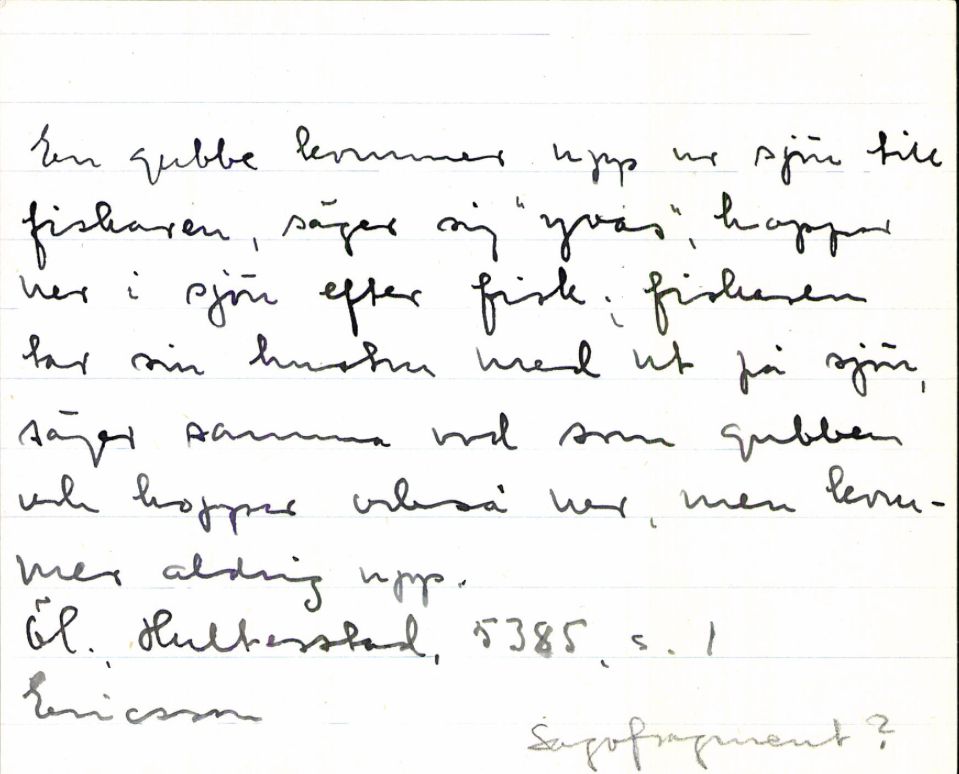 En gubbe kommer upp ur sjön till
fiskaren, säger sig "yvas", hoppar
ner i sjön efter fisk; fiskaren
tar sin hustru med ut på sjön,
säger samma ord som gubben
och hoppar också ner, men kom-
mer aldrig upp.
Öl., Hulterstad, 5385, s. 1
Ericsson
Sagofragment?